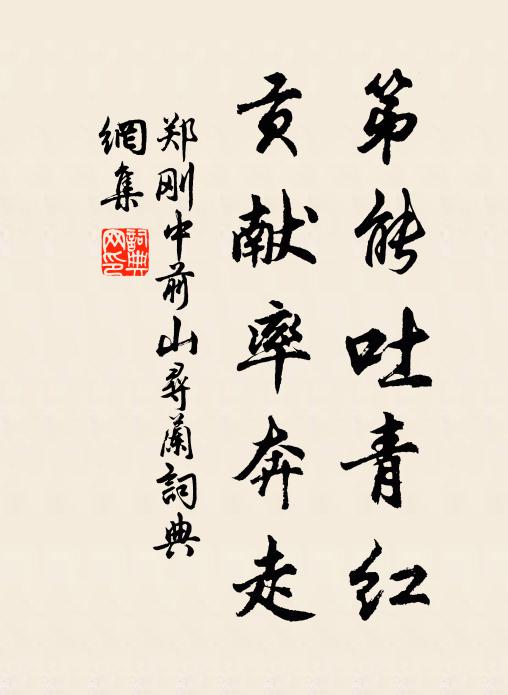 第能吐青红
贡献率奔走
郑刚中前山寻蘭詞典
網集
詞典網印